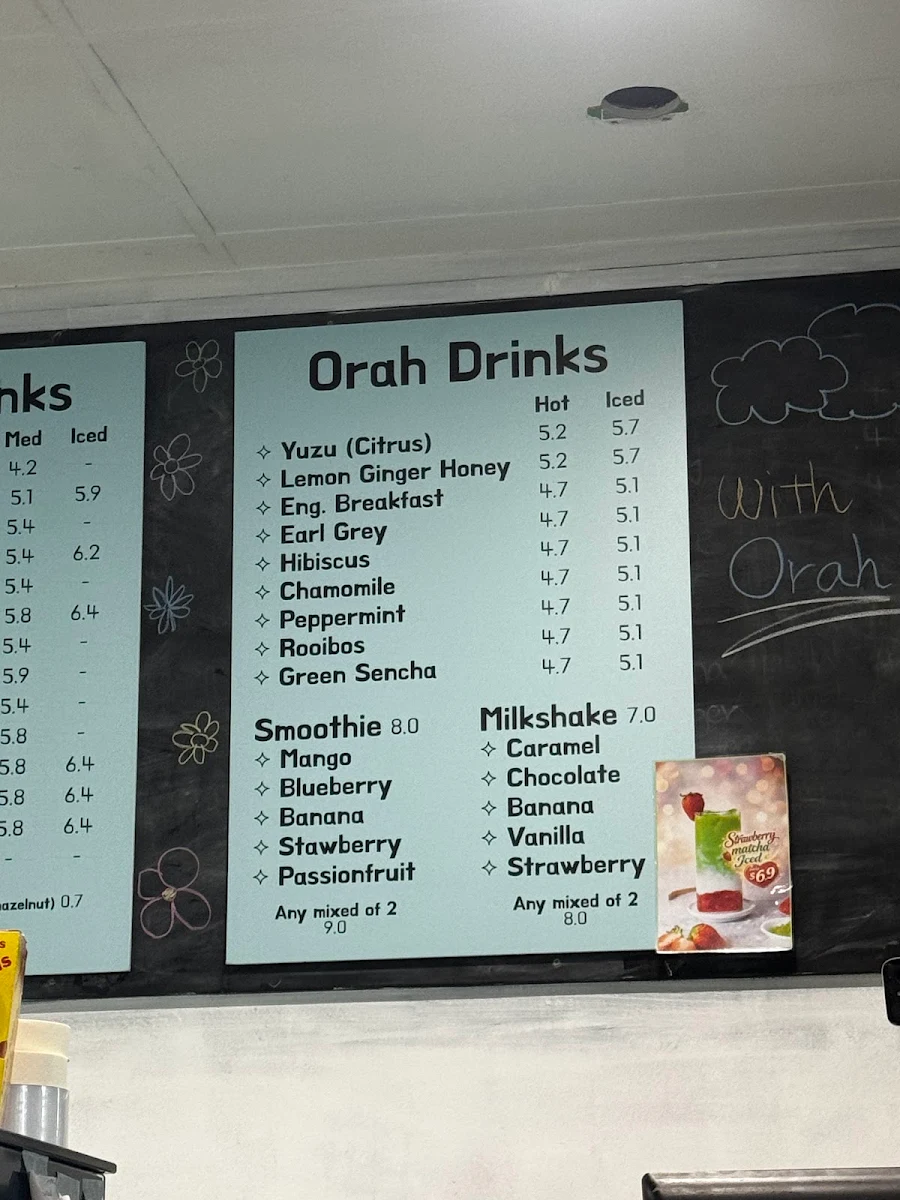 nks
Med Iced
4.2 -
5.1 5.9
5.4 -
5.4 6.2
5.4 -
5.8 6.4
5.4 -
5.9 -
5.4 -
5.8 -
5.8 6.4
5.8 6.4
5.8 6.4
- -
azelnut) 0.7
Orah Drinks
Hot Iced
✧ Yuzu (Citrus) 5.2 5.7
✧ Lemon Ginger Honey 5.2 5.7
✧ Eng. Breakfast 4.7 5.1
✧ Earl Grey 4.7 5.1
✧ Hibiscus 4.7 5.1
✧ Chamomile 4.7 5.1
✧ Peppermint 4.7 5.1
✧ Rooibos 4.7 5.1
✧ Green Sencha 4.7 5.1
Smoothie 8.0
✧ Mango
✧ Blueberry
✧ Banana
✧ Stawberry
✧ Passionfruit
Any mixed of 2
9.0
Milkshake 7.0
✧ Caramel
✧ Chocolate
✧ Banana
✧ Vanilla
✧ Strawberry
Any mixed of 2
8.0
Strawberry
matcha
Iced
$6.9
With
Orah